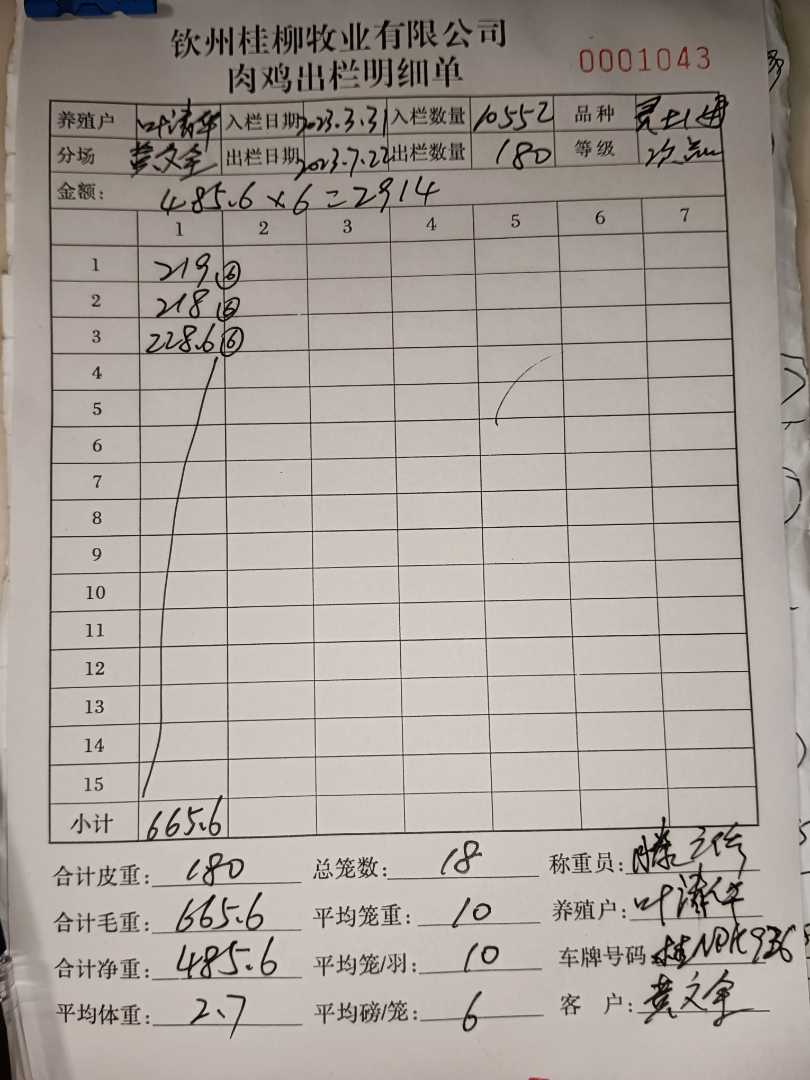 钦州桂柳牧业有限公司
肉鸡出栏明细单
0001043
养殖户 叶清华 入栏日期 2023.3.31 入栏数量 10552 品种
分场 黄文金 出栏日期 2023.7.22 出栏数量 180 等级
金额: 485.6×6=2914
1 2 3 4 5 6 7
1 219 ⑥
2 218 ⑥
3 228.6 ⑥
4
5
6
7
8
9
10
11
12
13
14
15
小计 665.6
合计皮重: 180 总笼数: 18 称重员:
合计毛重: 665.6 平均笼重: 10 养殖户: 叶清华
合计净重: 485.6 平均笼/羽: 10 车牌号码
平均体重: 2.7 平均磅/笼: 6 客 户: 黄文金